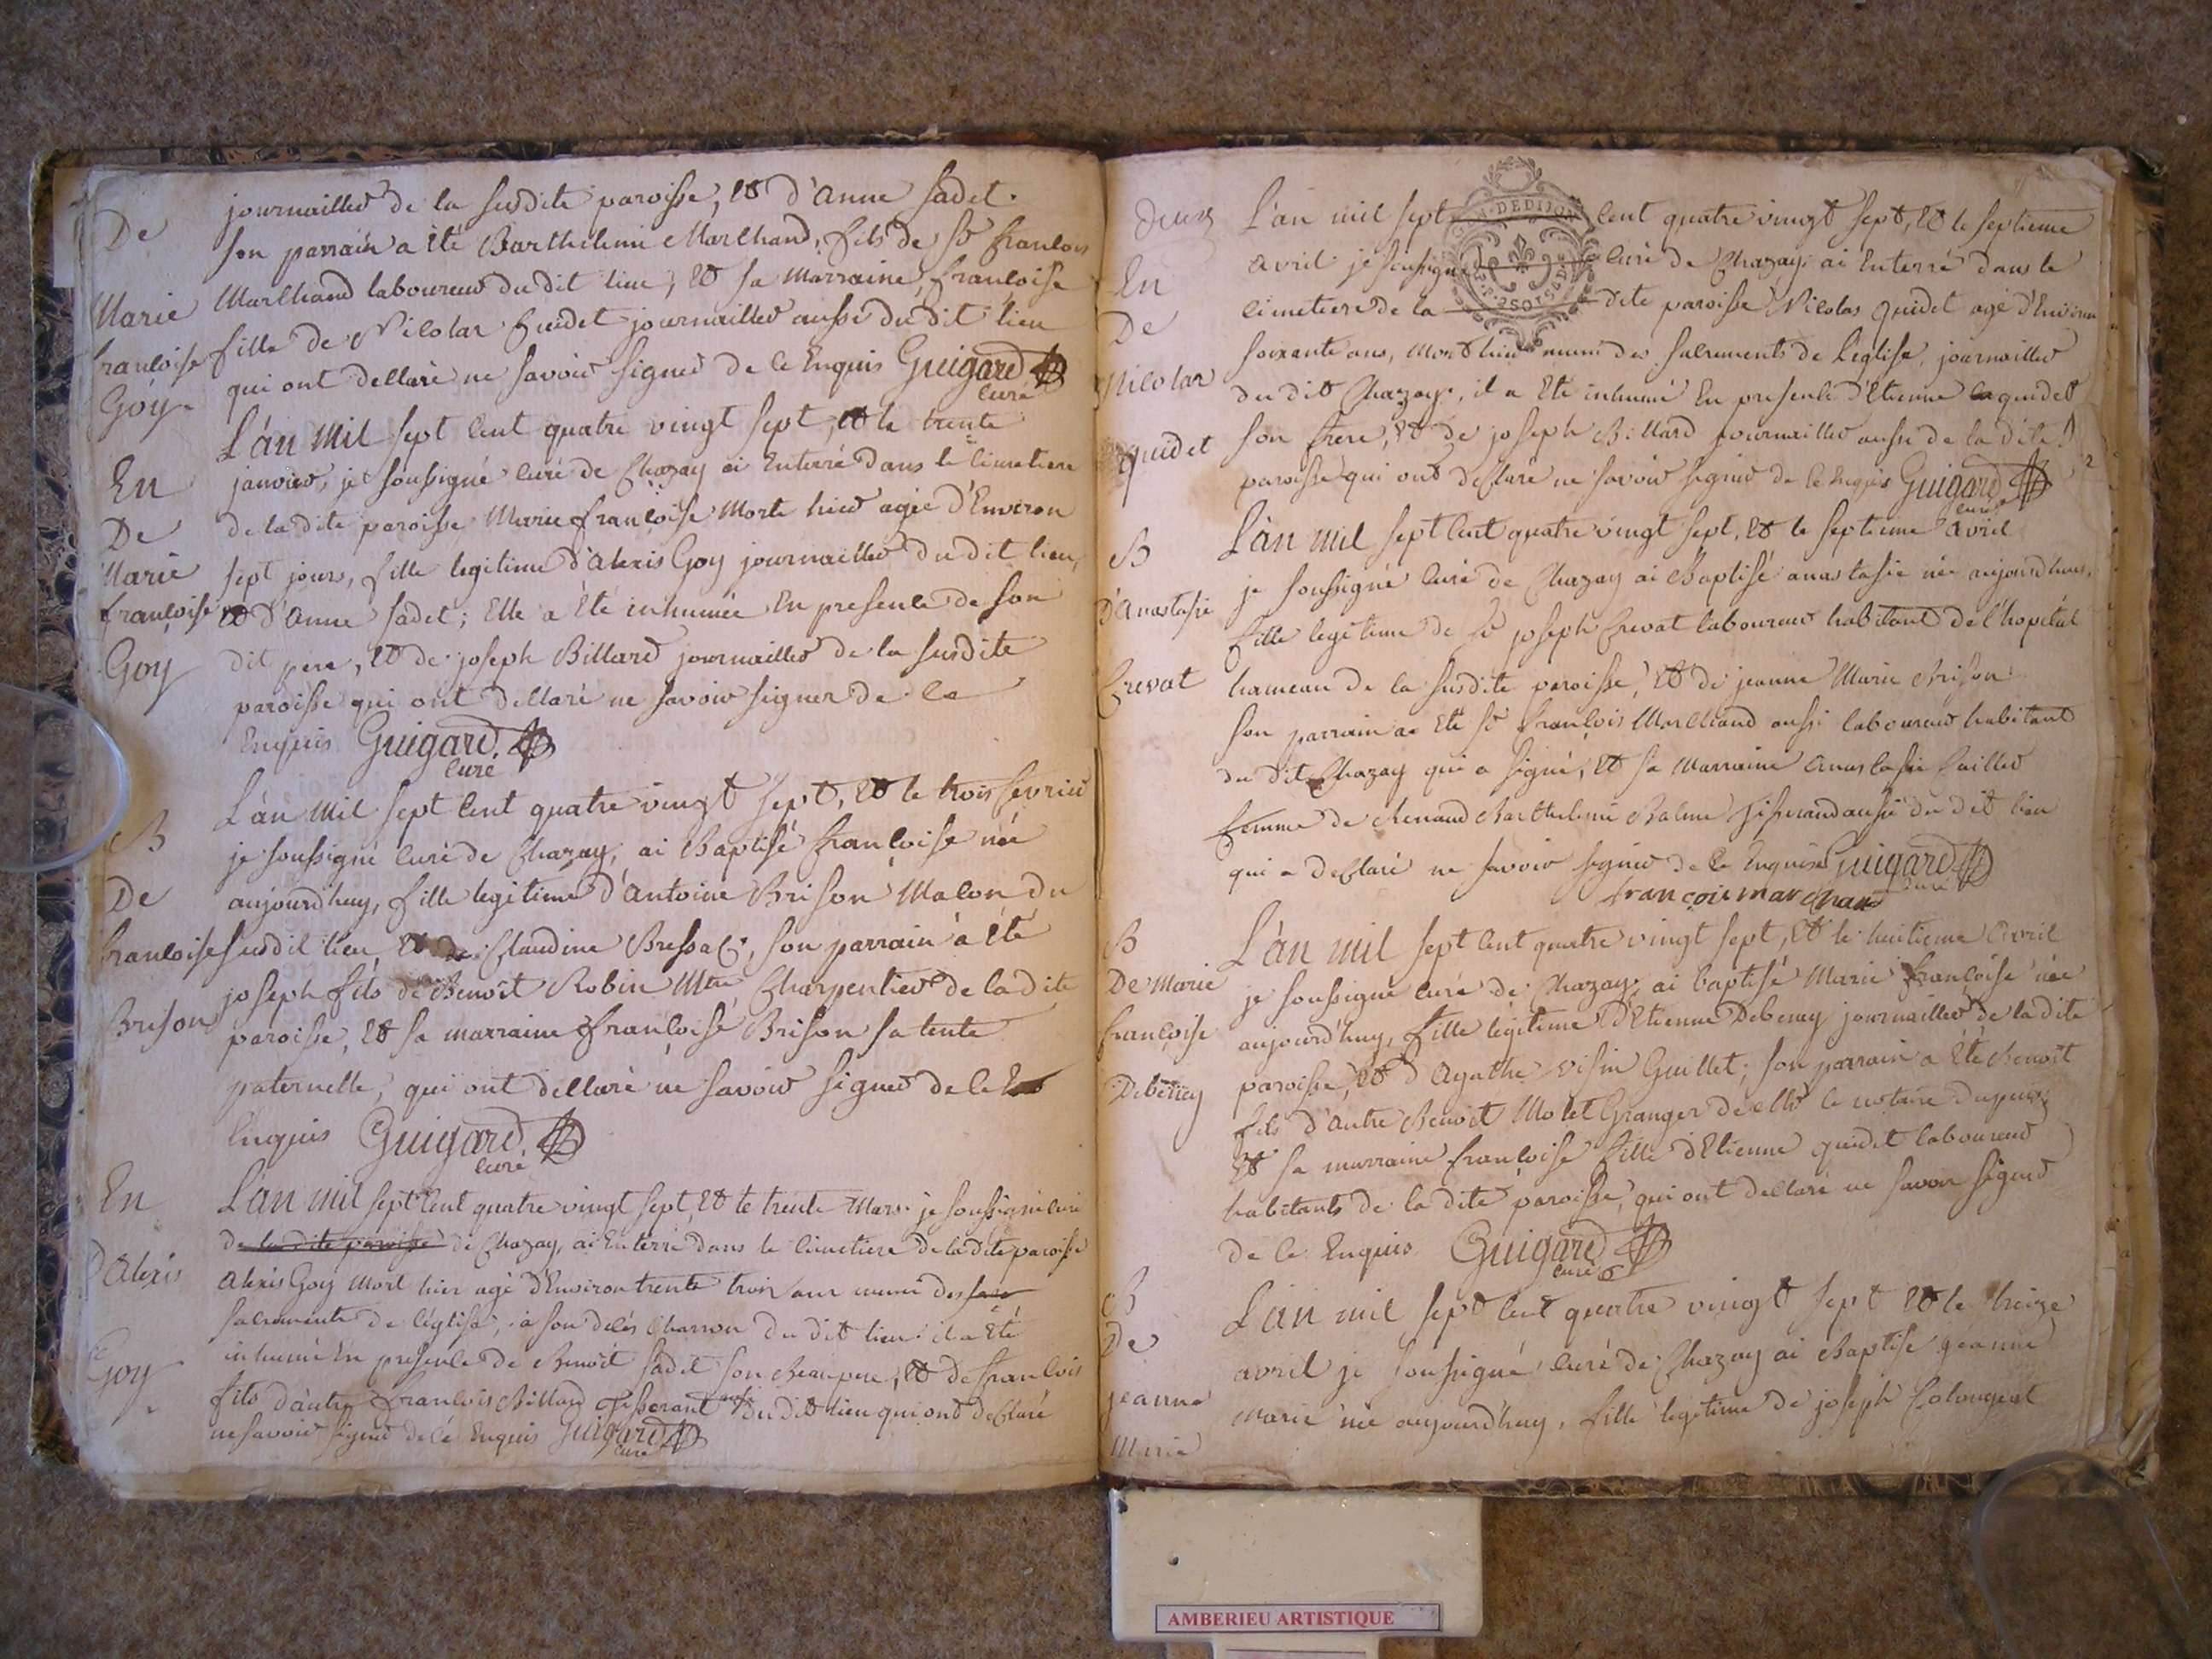 journaillier de la susdite paroisse, et d'anne sadet.
De
son parrain a été Barthelemi Marchand, fils de Sr francois
Marie
Marchand laboureur du dit lieu, et sa marraine, francoise
francoise
fille de Nicolas Guidet journaillier aussi du dit lieu
Goy.
qui ont declaré ne savoir signer de ce Enquis Guigard
curé
L'an mil sept cent quatre vingt sept, et le trente
En
janvier, je soussigné curé de Chazay ai Enterré dans le cimetiere
De
de la dite paroisse Marie françoise Morte hier agée d'Environ
Marie
sept jours, fille legitime d'alexis Goy journaillier du dit lieu,
françoise
et d'anne sadet; Elle a Eté inhumée En presence de son
Goy
dit pere, et de joseph Billard journaillier de la susdite
paroisse qui ont declaré ne savoir signer de ce
Enquis Guigard
curé
L'an mil sept cent quatre vingt sept, et le trois fevrier
B
je soussigné curé de Chazay, ai Baptisé francoise née
De
aujourdhuy, fille legitime d'antoine Brison Macon du
francoise
susdit lieu, et de Claudine Bressac, son parrain a été
Brison
joseph fils de Benoit Robin Mtre Charpentier de la dite
paroisse, et sa marraine francoise Brison sa tente
paternelle, qui ont declaré ne savoir signer de ce
Enquis Guigard
curé
En
L'an mil sept cent quatre vingt sept, et le trente Mars je soussigné curé
de la dite paroisse de Chazay, ai Enterré dans le cimetiere de la dite paroisse
D'alexis
alexis Goy Mort hier agé d'Environ trente trois ans muni des
sacrements de l'église, à son décés charron du dit lieu il a Eté
Goy
inhumé En presence de Benoit sadet son Beau pere, et de francois
fils d'autre francois Billard Tisserant aussi du dit lieu qui ont declaré
ne savoir signer de ce Enquis Guigard
curé
deux
L'an mil sept cent quatre vingt sept, et le septieme
avril je soussigné curé de Chazay, ai Enterré dans le
En
De
cimetiere de la dite paroisse Nicolas guidet agé d'Environ
soixante ans, Mort hier muni des sacrements de l'eglise, journaillier
Nicolas
du dit Chazay, il a Eté inhumé En presence d'Etienne guidet
guidet
son frere, et de joseph Billard journaillier aussi de la dite
paroisse qui ont declaré ne savoir signer de ce Enquis Guigard
curé
L'an mil sept cent quatre vingt sept, et le septieme avril
B
je soussigné curé de Chazay ai Baptisé anastasie née aujourd'huy,
D'anastasie
fille legitime de Sr joseph Crevat laboureur habitant de l'hopital
Crevat
hameau de la susdite paroisse, et de jeanne Marie Brison
son parrain a Eté Sr francois Marchand aussi laboureur habitant
du dit Chazay qui a signé, et sa Marraine anastasie
femme de Renaud Barthelemi Balme Tisserand aussi du dit lieu
qui a declaré ne savoir signer de ce Enquise Guigard
curé
francois marchand
B
L'an mil sept cent quatre vingt sept, et le huitieme avril
De Marie
je soussigné curé de Chazay, ai baptisé Marie françoise née
françoise
aujourd'huy, fille legitime d'Etienne Debeney journaillier de la dite
Debeney
paroisse, et d'Agathe Guillet; son parrain a Eté Benoît
fils d'autre Benoît Molet Granger de Mr le notaire Dupuis
et sa marraine francoise fille d'Etienne guidet laboureur
habitants de la dite paroisse, qui ont declaré ne savoir signer
de ce Enquis Guigard
curé
B
L'an mil sept cent quatre vingt sept et le treize
De
avril je soussigné curé de Chazay ai Baptisé jeanne
jeanne
marie née aujourd'huy, fille legitime de joseph
Marie
AMBERIEU ARTISTIQUE